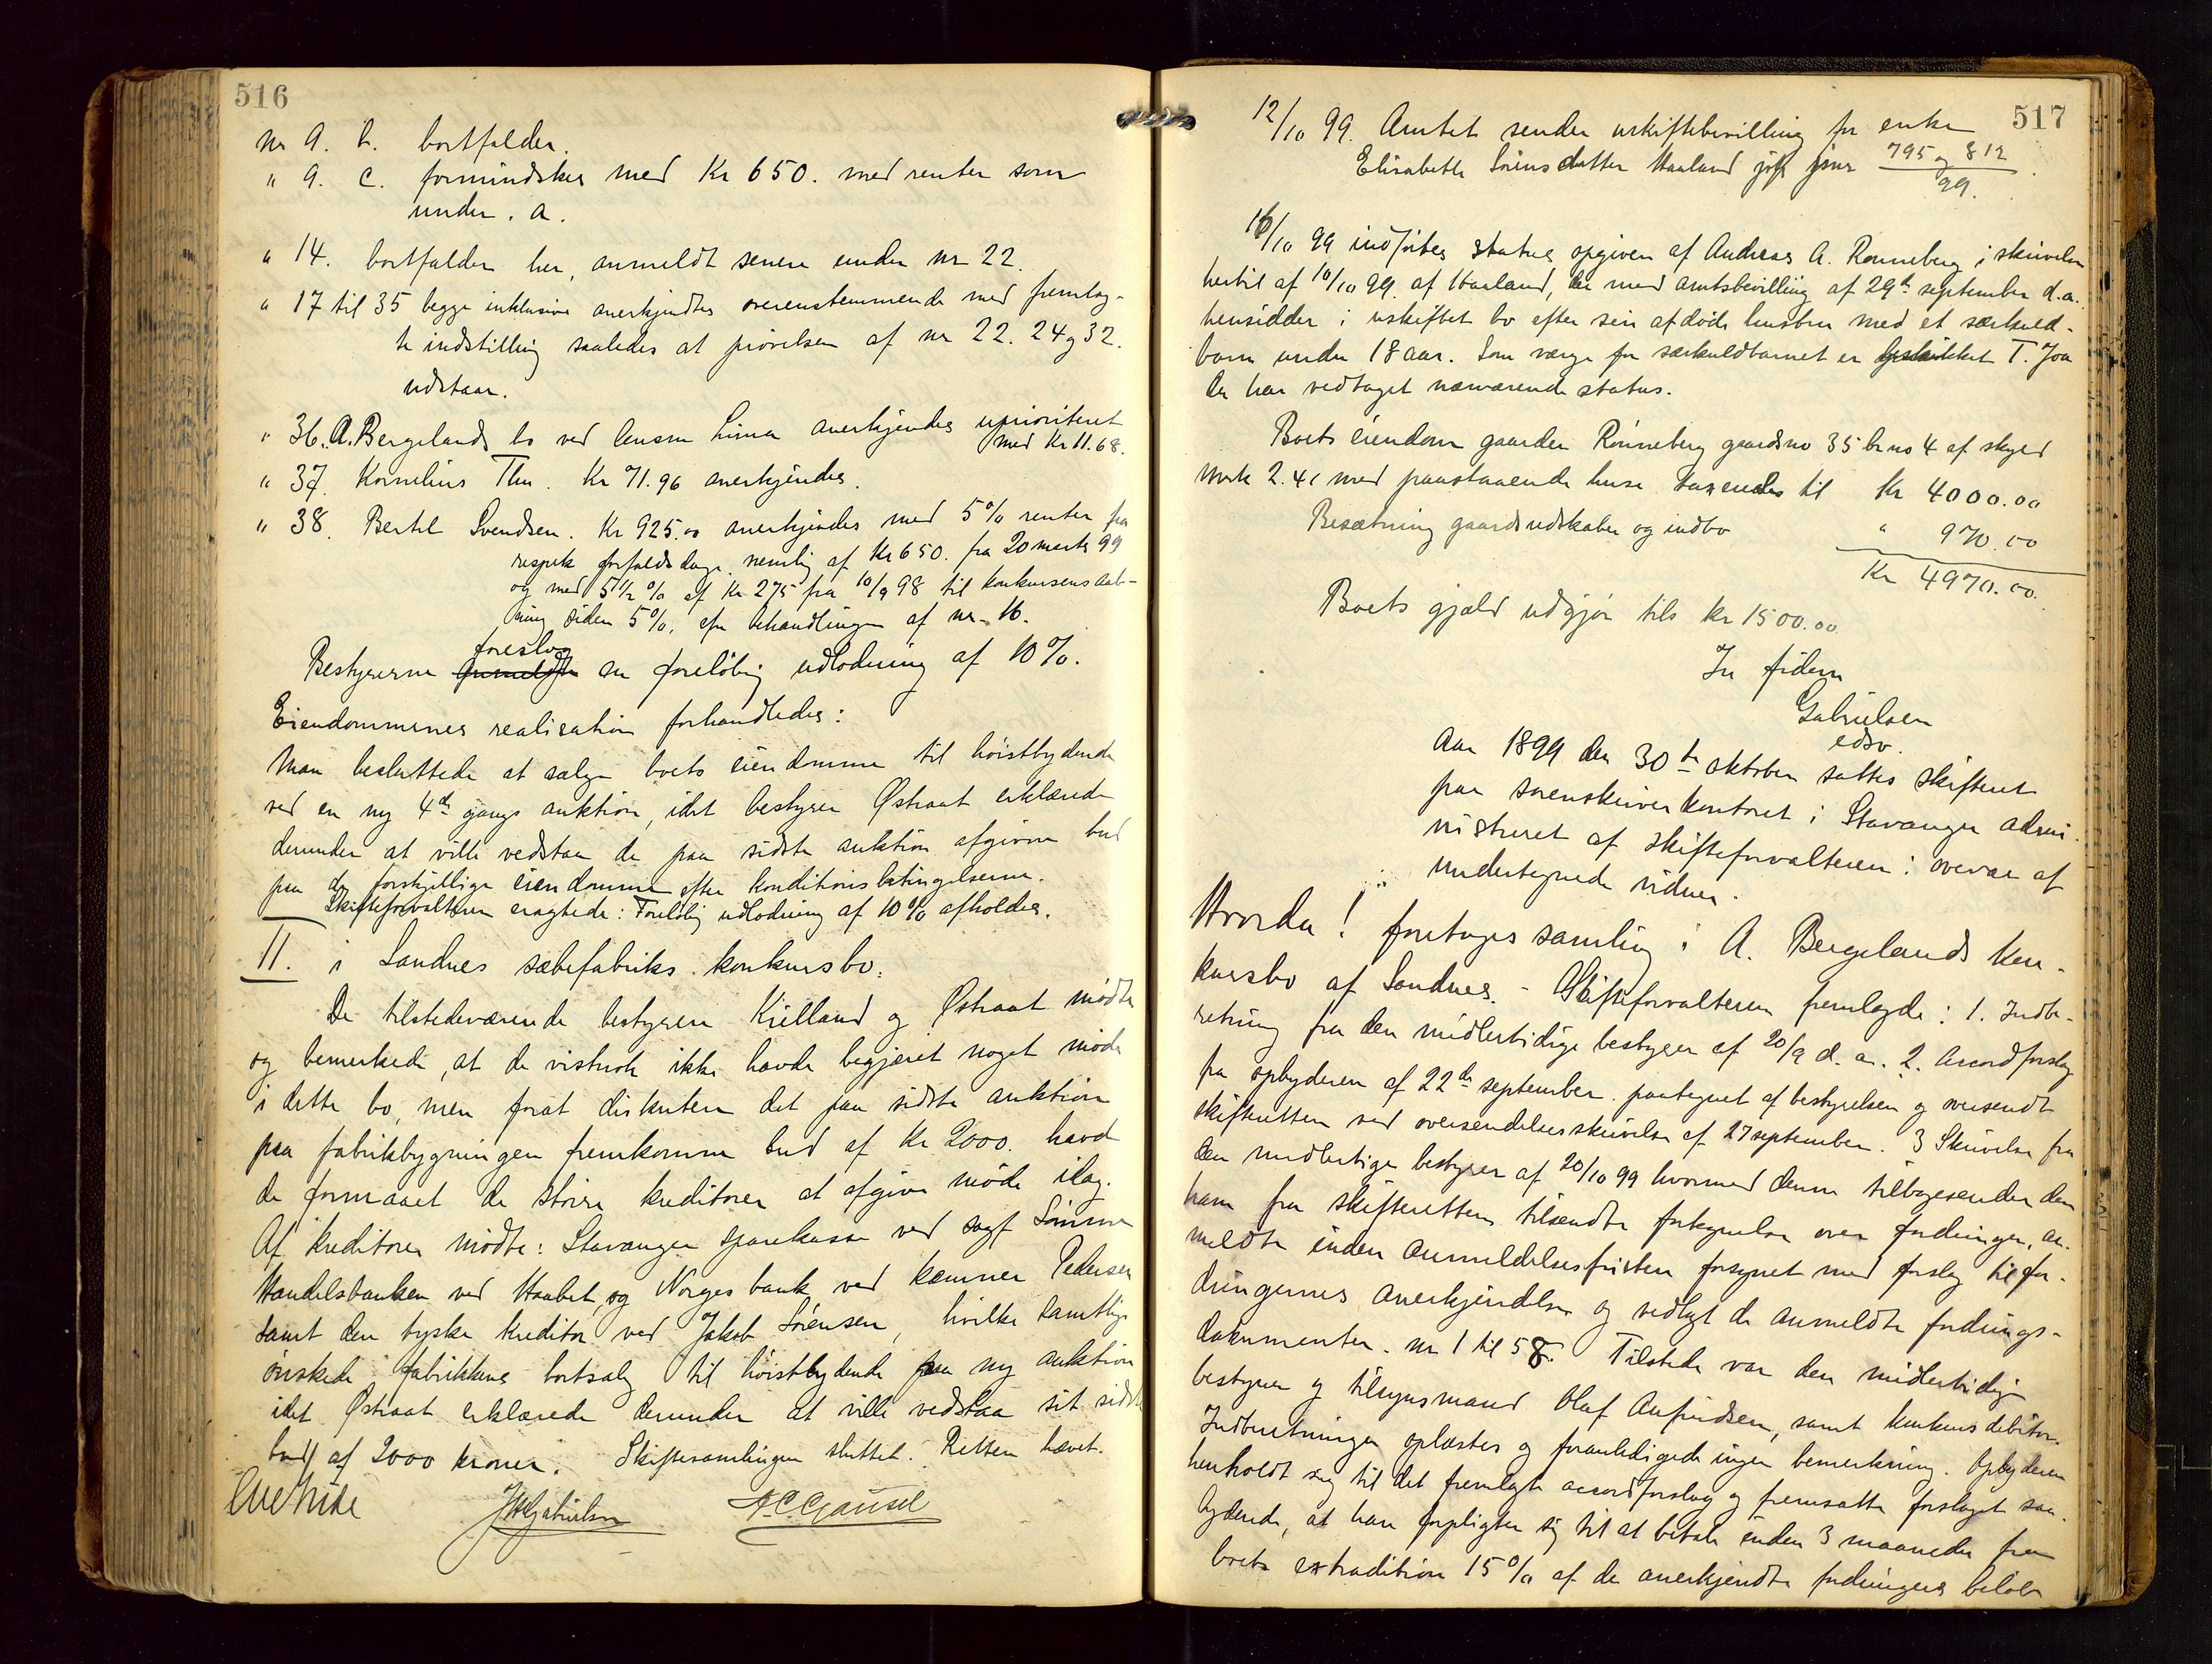 516
nr 9. b. bortfalder.
" 9. c. formindskes med Kr 650. med renter som
under. a.
" 14. bortfalder her, anmeldt senere under nr 22.
" 17 til 35 begge inklusive anerkjendtes overensstemmende med fremlag-
te indstilling saaledes at prøvelsen af nr 22. 24 og 32.
udstaar.
" 36. A. Bergelands bo ved Lima anerkjendes uprioriteret
med Kr 11.68.
" 37. Kornelius Thu. Kr 71.96 anerkjendes.
" 38. Bertel Svendsen. Kr 925.00 anerkjendes med 5% renter fra
respek forfaldsdage nemlig af Kr 650. fra 20 marts 99
og med 5½ % af Kr 275 fra 10/9 98 til konkursens aab-
ning siden 5%, efr behandlingen af nr. 16.
foreslog
Bestyrerne anmeldte en foreløbig udlodning af 10%.
Eiendommenes realisation forhandledes:
Man besluttede at sælge boets eiendomme til høistbydende
ved en ny 4de gangs auktion, idet bestyrer Østraat erklærede
derunder at ville vedstaa de paa sidste auktion afgivne bud
paa de forskjellige eiendomme efter konditionsbetingelserne.
Skifteforvalteren eragtede: Foreløbig udlodning af 10% afholdes.
II. i Sandnes sæbefabriks konkursbo.
De tilstedeværende bestyrere Kielland og Østraat mødte
og bemerkede, at de vistnok ikke havde begjæret noget møde
i dette bo, men forat diskutere det paa sidste auktion
paa fabrikbygningen fremkomne bud af Kr 2000. havde
de formaaet de større kreditorer at afgive møde idag.
Af kreditorer mødte: Stavanger sparekasse ved sagf Sømme
Handelsbanken ved Haabet, og Norges bank ved kæmner Pedersen
samt den tyske kreditor ved Jakob Sørensen, hvilke samtlige
ønskede fabrikkens bortsalg til høistbydende paa ny auktion
idet Østraat erklærede derunder at ville vedstaa sit sidste
bud af 2000 kroner. Skiftesamlingen sluttet. Retten hævet.
JMGabrielsen A. C. Gausel
517
12/10 99. Amtet sender uskiftebevilling for enke
Elisabeth Sørensdatter Haaland jfr jour 795 og 812
99.
16/10 99 indføres status opgiven af Andreas A. Rønneberg i skrivelse
hertil af 10/10 99. af Haaland, der med amtsbevilling af 29de september d.a.
hensidder i uskiftet bo efter sin afdøde husbru med et særkuld-
barn under 18 aar. Som værge for særkuldbarnet er beskikket T. Joa
der har vedtaget nærværende status.
Boets eiendom gaarden Rønneberg gaardsno 35 br no 4 af skyld
mark 2.41 med paastaaende huse taxeredes til Kr 4000.00
Besætning gaardsredskaber og indbo " 970.00
Kr 4970.00.
Boets gjæld udgjør tils kr 1500.00
In fidem
Gabrielsen
edsv.
Aar 1899 den 30te oktober sattes skifteret
paa sorenskriverkontoret i Stavanger admi-
nistreret af skifteforvalteren i overvær af
undertegnede vidner.
Hvorda! foretoges samling i A. Bergelands kon-
kursbo af Sandnes. - Skifteforvalteren fremlagde: 1. Indbe-
retning fra den midlertidige bestyrer af 20/9 d. a. 2. Accordforslag
fra opbyderen af 22de september. paategnet af bestyrelsen og oversendt
skifteretten ved oversendelsesskrivelse af 27 september. 3 Skrivelse fra
den midlertige bestyrer af 20/10 99 hvormed denne tilbagesender den
ham fra skifteretten tilsendte fortegnelse over fordringer, an-
meldte inden anmeldelsesfristen forsynet med forslag til for-
dringernes anerkjendelse og vedlagt de anmeldte fordrings-
dokumenter. nr 1 til 58. Tilstede var den midlertidige
bestyrer og tilsynsmand Olaf Anfindsen, samt konkursdebitor.
Indberetningen oplæstes og foranledigede ingen bemerkning. Opbyderen
henholdt sig til det fremlagte accordforslag og fremsatte forslaget saa-
lydende, at han forpligter sig til at betale inden 3 maaneder fra
boets extradition 15% af de anerkjendte fordringers beløb